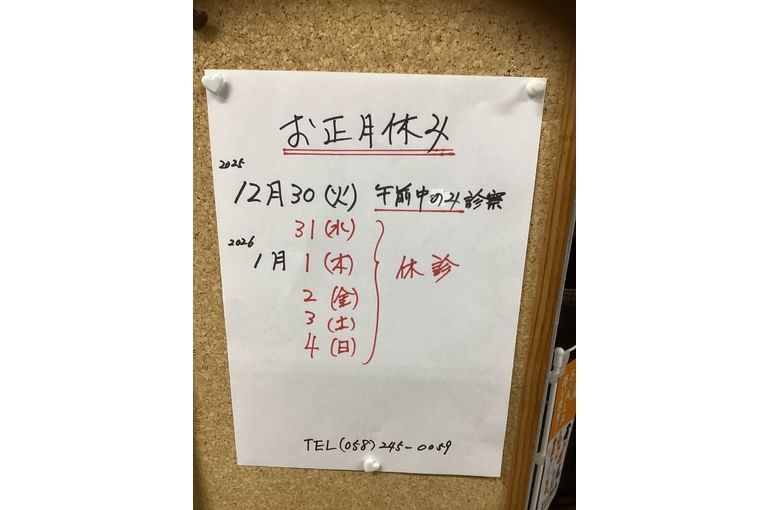 お正月休み
2025
12月30(火) 午前中のみ診察
31(水)
2026
1月 1(木) 休診
2(金)
3(土)
4(日)
TEL(058)245-0059